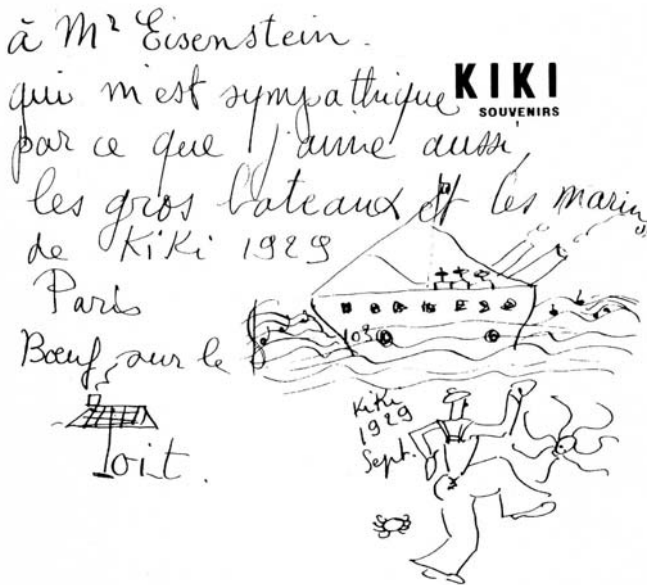 à Mr Eisenstein.
qui m'est sympathique
KIKI
SOUVENIRS
par ce que j'aime aussi
les gros bateaux et les marins
de KiKi 1929
Paris
Bœuf sur le
Toit.
KiKi
1929
Sept.